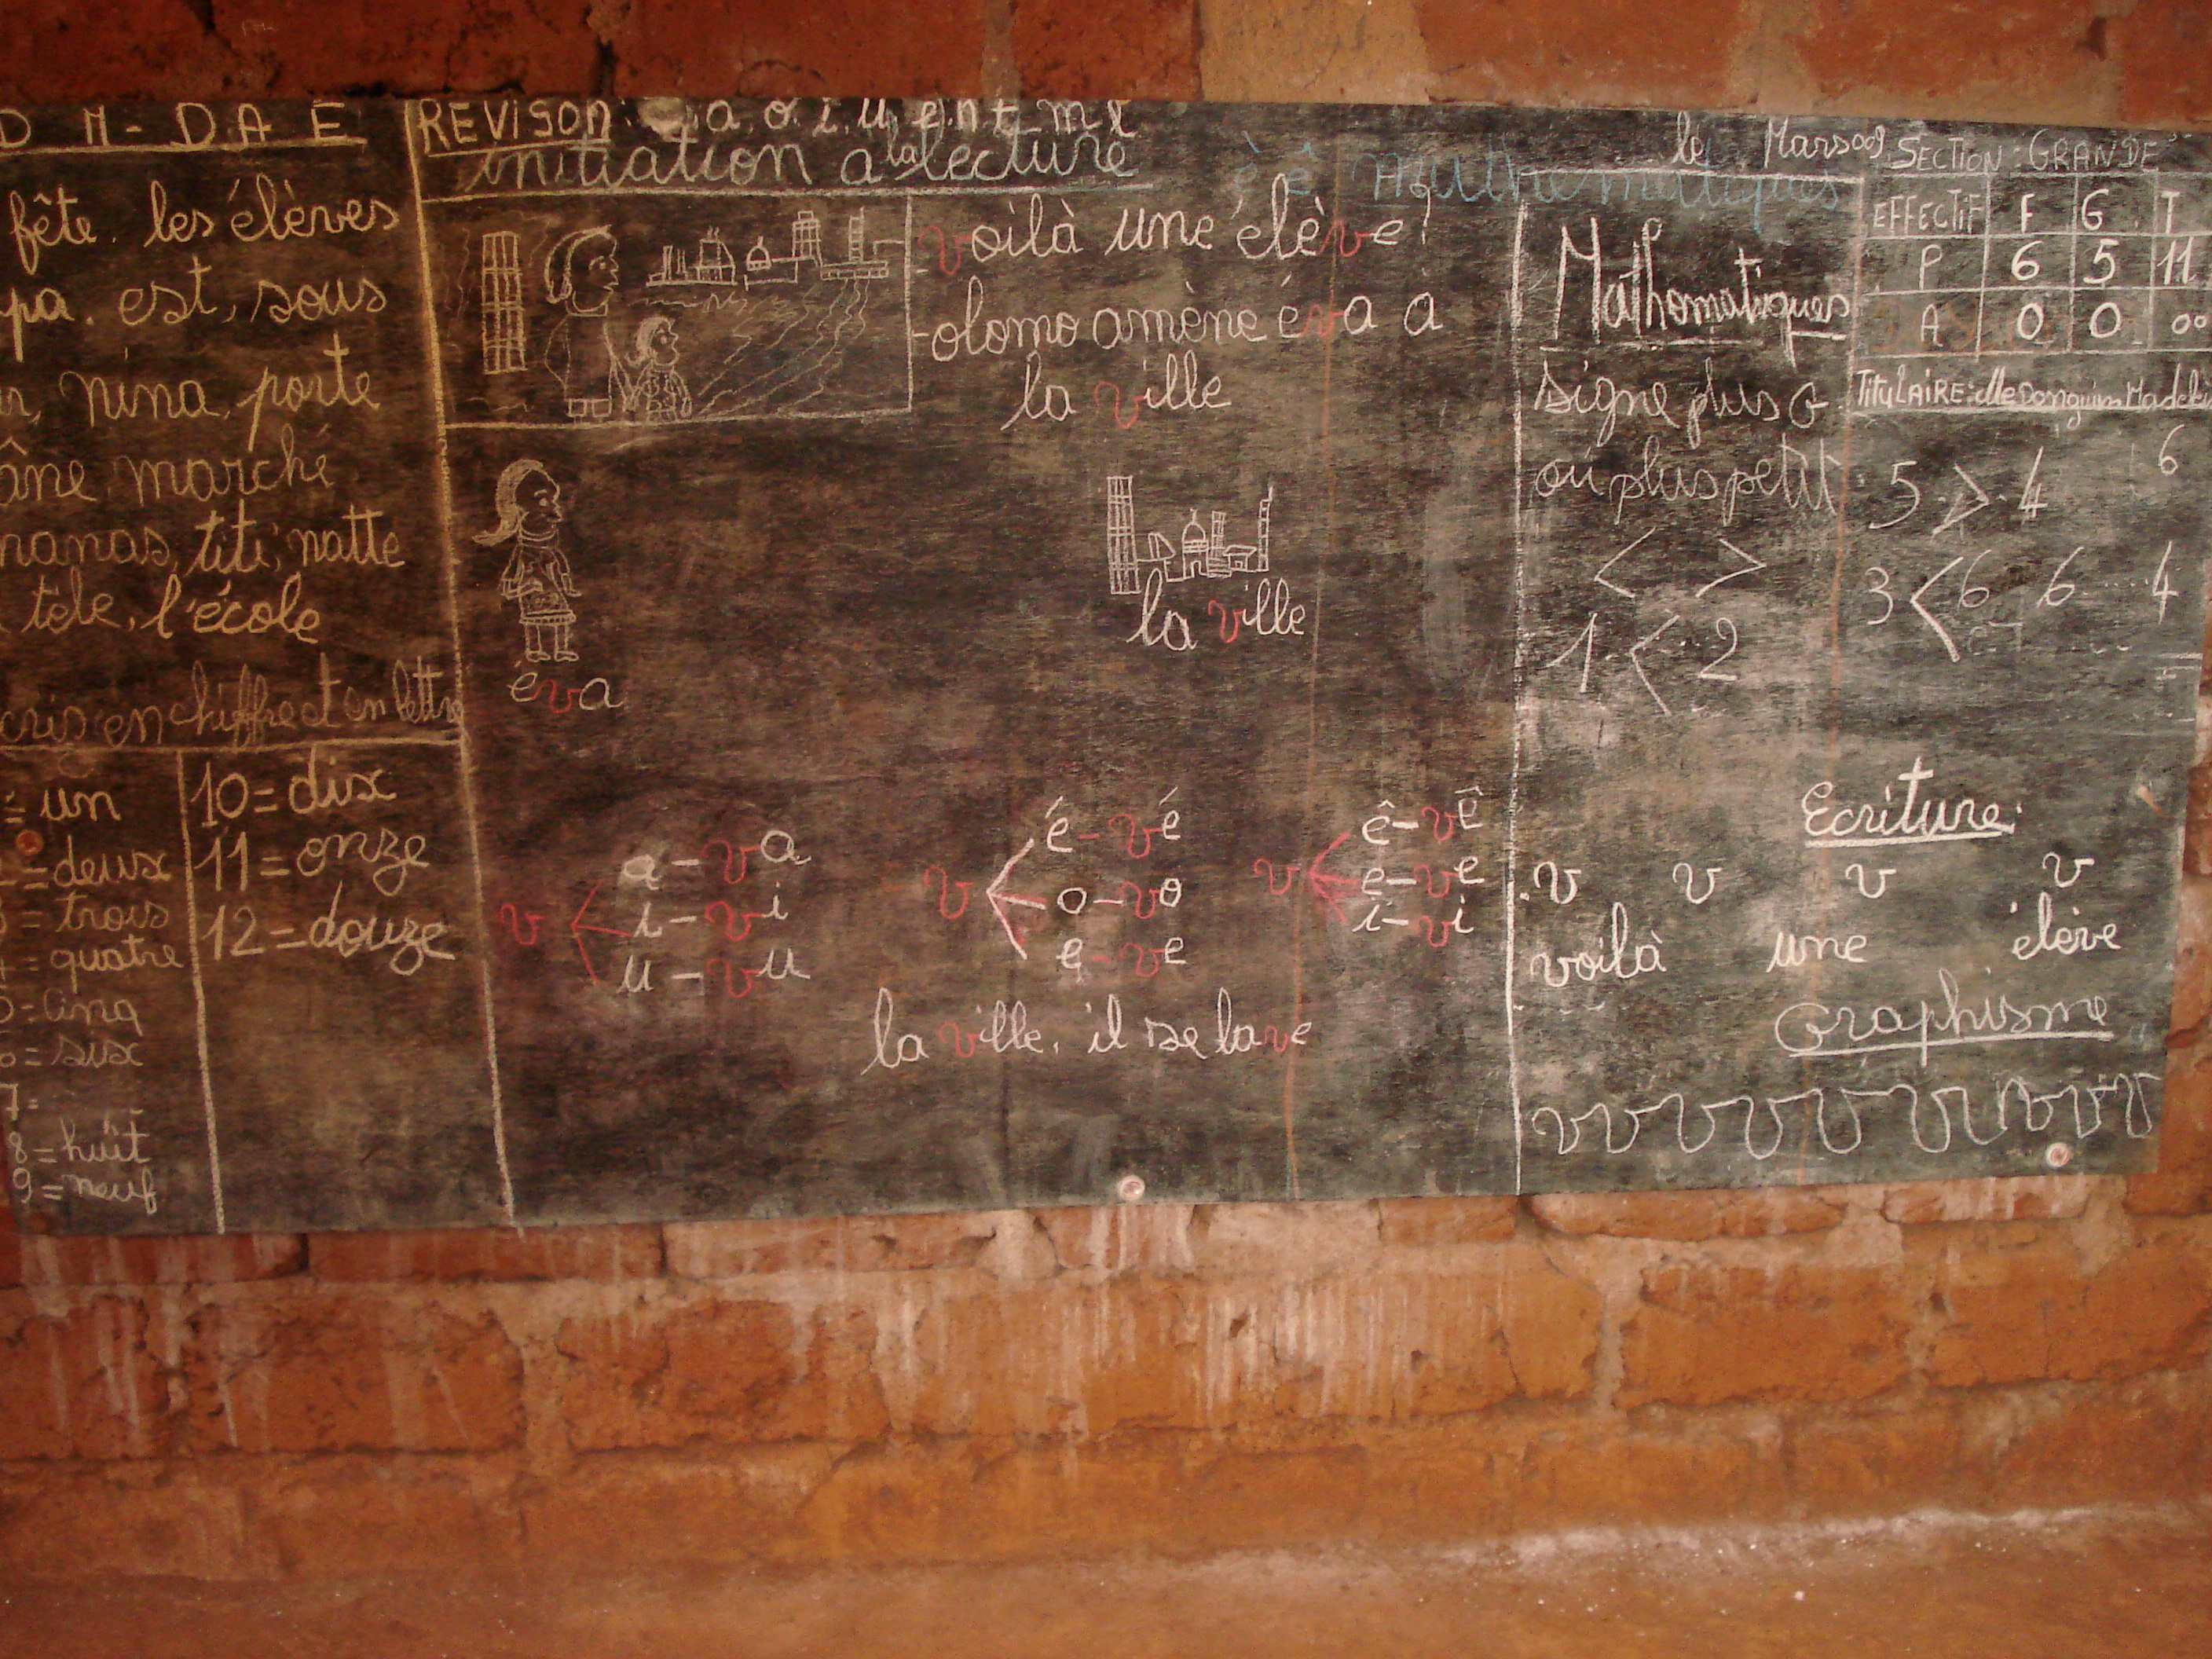 D N - D A E
fête. les élèves
pa. est, sous
nina, porte
âne marché
nanas, titi, natte
tèle, l'école
cris en chiffre et en lettre
= un
= deux
3 = trois
= quatre
= cinq
= six
7 =
8 = huit
9 = neuf
10 = dix
11 = onze
12 = douze
REVISON: a, o, i, u, e, n, t, m, l
initiation a la lecture
voilà une élève!
- olomo amène éva à
la ville
éva
la ville
v a - va
i - vi
u - vu
v é - vé
o - vo
e - ve
v ê - vê
e - ve
i - vi
la ville, il se lave
mathematiques
le Mars 09
Mathematiques
signe plus G
ou plus petit
< >
1 < 2
SECTION: GRANDE
EFFECTIF F G T
P 6 5 11
A 0 0 00
TITULAIRE:
5 > 4 6
3 < 6 6 ... 4
Ecriture:
v v v v
voilà une élève
Graphisme
v v v v v v v v v v